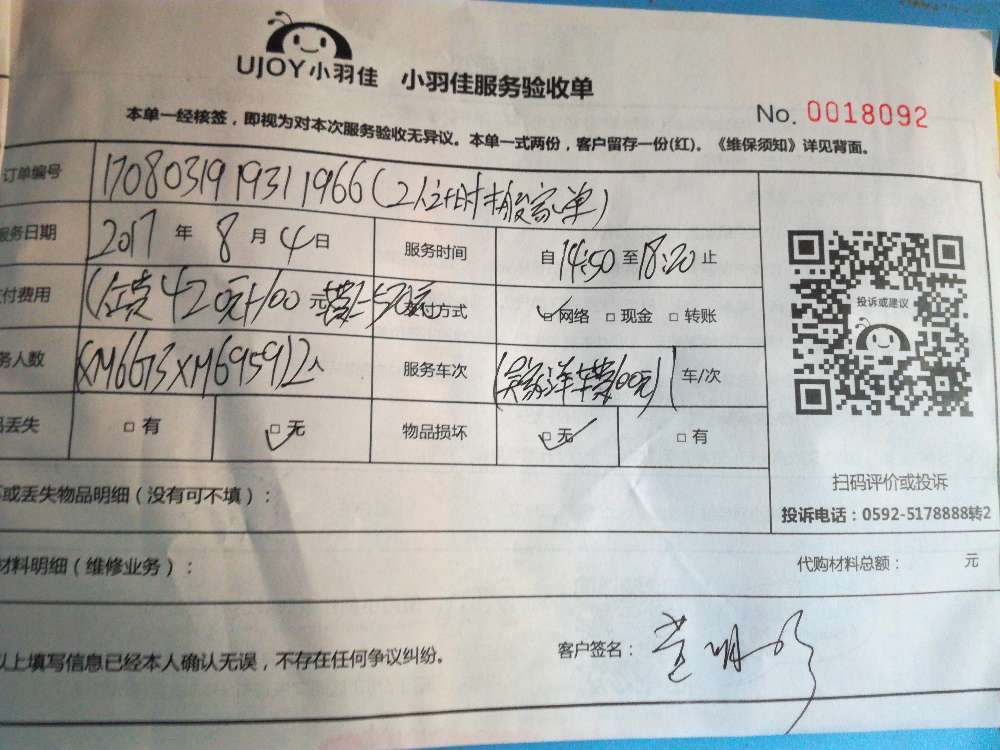 UJOY小羽佳 小羽佳服务验收单
No. 0018092
本单一经核签，即视为对本次服务验收无异议。本单一式两份，客户留存一份(红)。《维保须知》详见背面。
订单编号 1708031919311966(2人计时搬家单)
服务日期 2017 年 8 月 4 日 服务时间 自 14:50 至 18:20 止
付费用 420元+100 元 付方式 网络 □ 现金 □ 转账
务人数 (XM6673 XM6959)2人 服务车次 100元) 1 车/次
丢失 □ 有 □ 无 物品损坏 □ 无 □ 有
投诉或建议
扫码评价或投诉
投诉电话：0592-5178888转2
或丢失物品明细（没有可不填）：
材料明细（维修业务）： 代购材料总额： 元
以上填写信息已经本人确认无误，不存在任何争议纠纷。 客户签名：